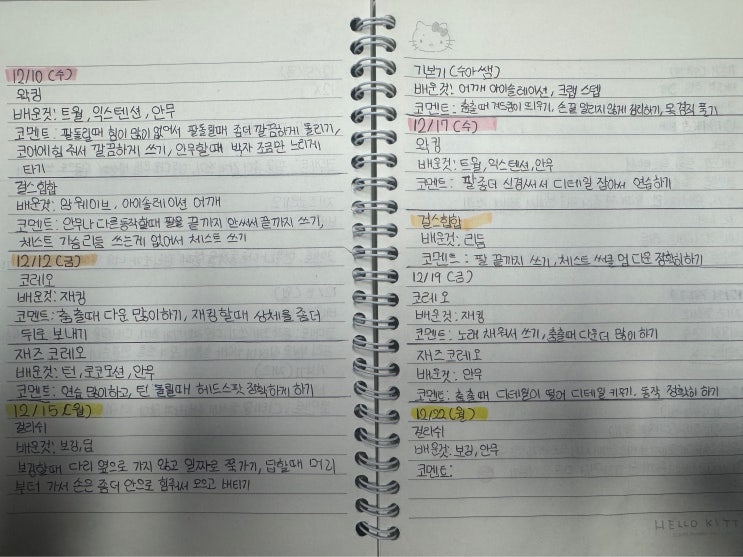 12/10 (수)
왁킹
배운것: 트월, 익스텐션, 안무
코멘트: 팔돌릴때 힘이 많이 없어서 팔돌릴때 좀더 깔끔하게 돌리기,
코어에 힘 줘서 깔끔하게 쓰기, 안무할때 박자 조금만 느리게
타기
걸스힙합
배운것: 암웨이브, 아이솔레이션 어깨
코멘트: 안무나 다른동작할때 팔을 끝까지 안써서 끝까지 쓰기,
체스트 가슴리듬 쓰는게 없어서 체스트 쓰기
12/12 (금)
코레오
배운것: 재킹
코멘트: 춤출때 다운 많이하기, 재킹할때 상체를 좀더
뒤로 보내기
재즈 코레오
배운것: 턴, 로코모션, 안무
코멘트: 연습 많이하고, 턴 돌릴때 헤드스팟 정확하게 하기
12/15 (월)
걸리쉬
배운것: 보깅, 딥
보깅할때 다리 옆으로 가지 않고 일짜로 쭉가기, 딥할때 머리
부터 가서 손은 좀더 안으로 힘줘서 모으고 버티기
기본기 (수아쌤)
배운것: 어깨 아이솔레이션, 크랩 스텝
코멘트: 춤출때 띄우기, 손끝 말리지 않게 정리하기, 목 긴장 풀기
12/17 (수)
왁킹
배운것: 트월, 익스텐션, 안무
코멘트: 팔 좀더 신경써서 디테일 잡아서 연습하기
걸스힙합
배운것: 리듬
코멘트: 팔 끝까지 쓰기, 체스트 써클 업 다운 정확히하기
12/19 (금)
코레오
배운것: 재킹
코멘트: 노래 채워서 쓰기, 춤출때 다운 더 많이 하기
재즈 코레오
배운것: 안무
코멘트: 춤출때 디테일이 떨어 디테일 키우기, 동작 정확히 하기
12/22 (월)
걸리쉬
배운것: 보깅, 안무
코멘트:
HELLO KITT